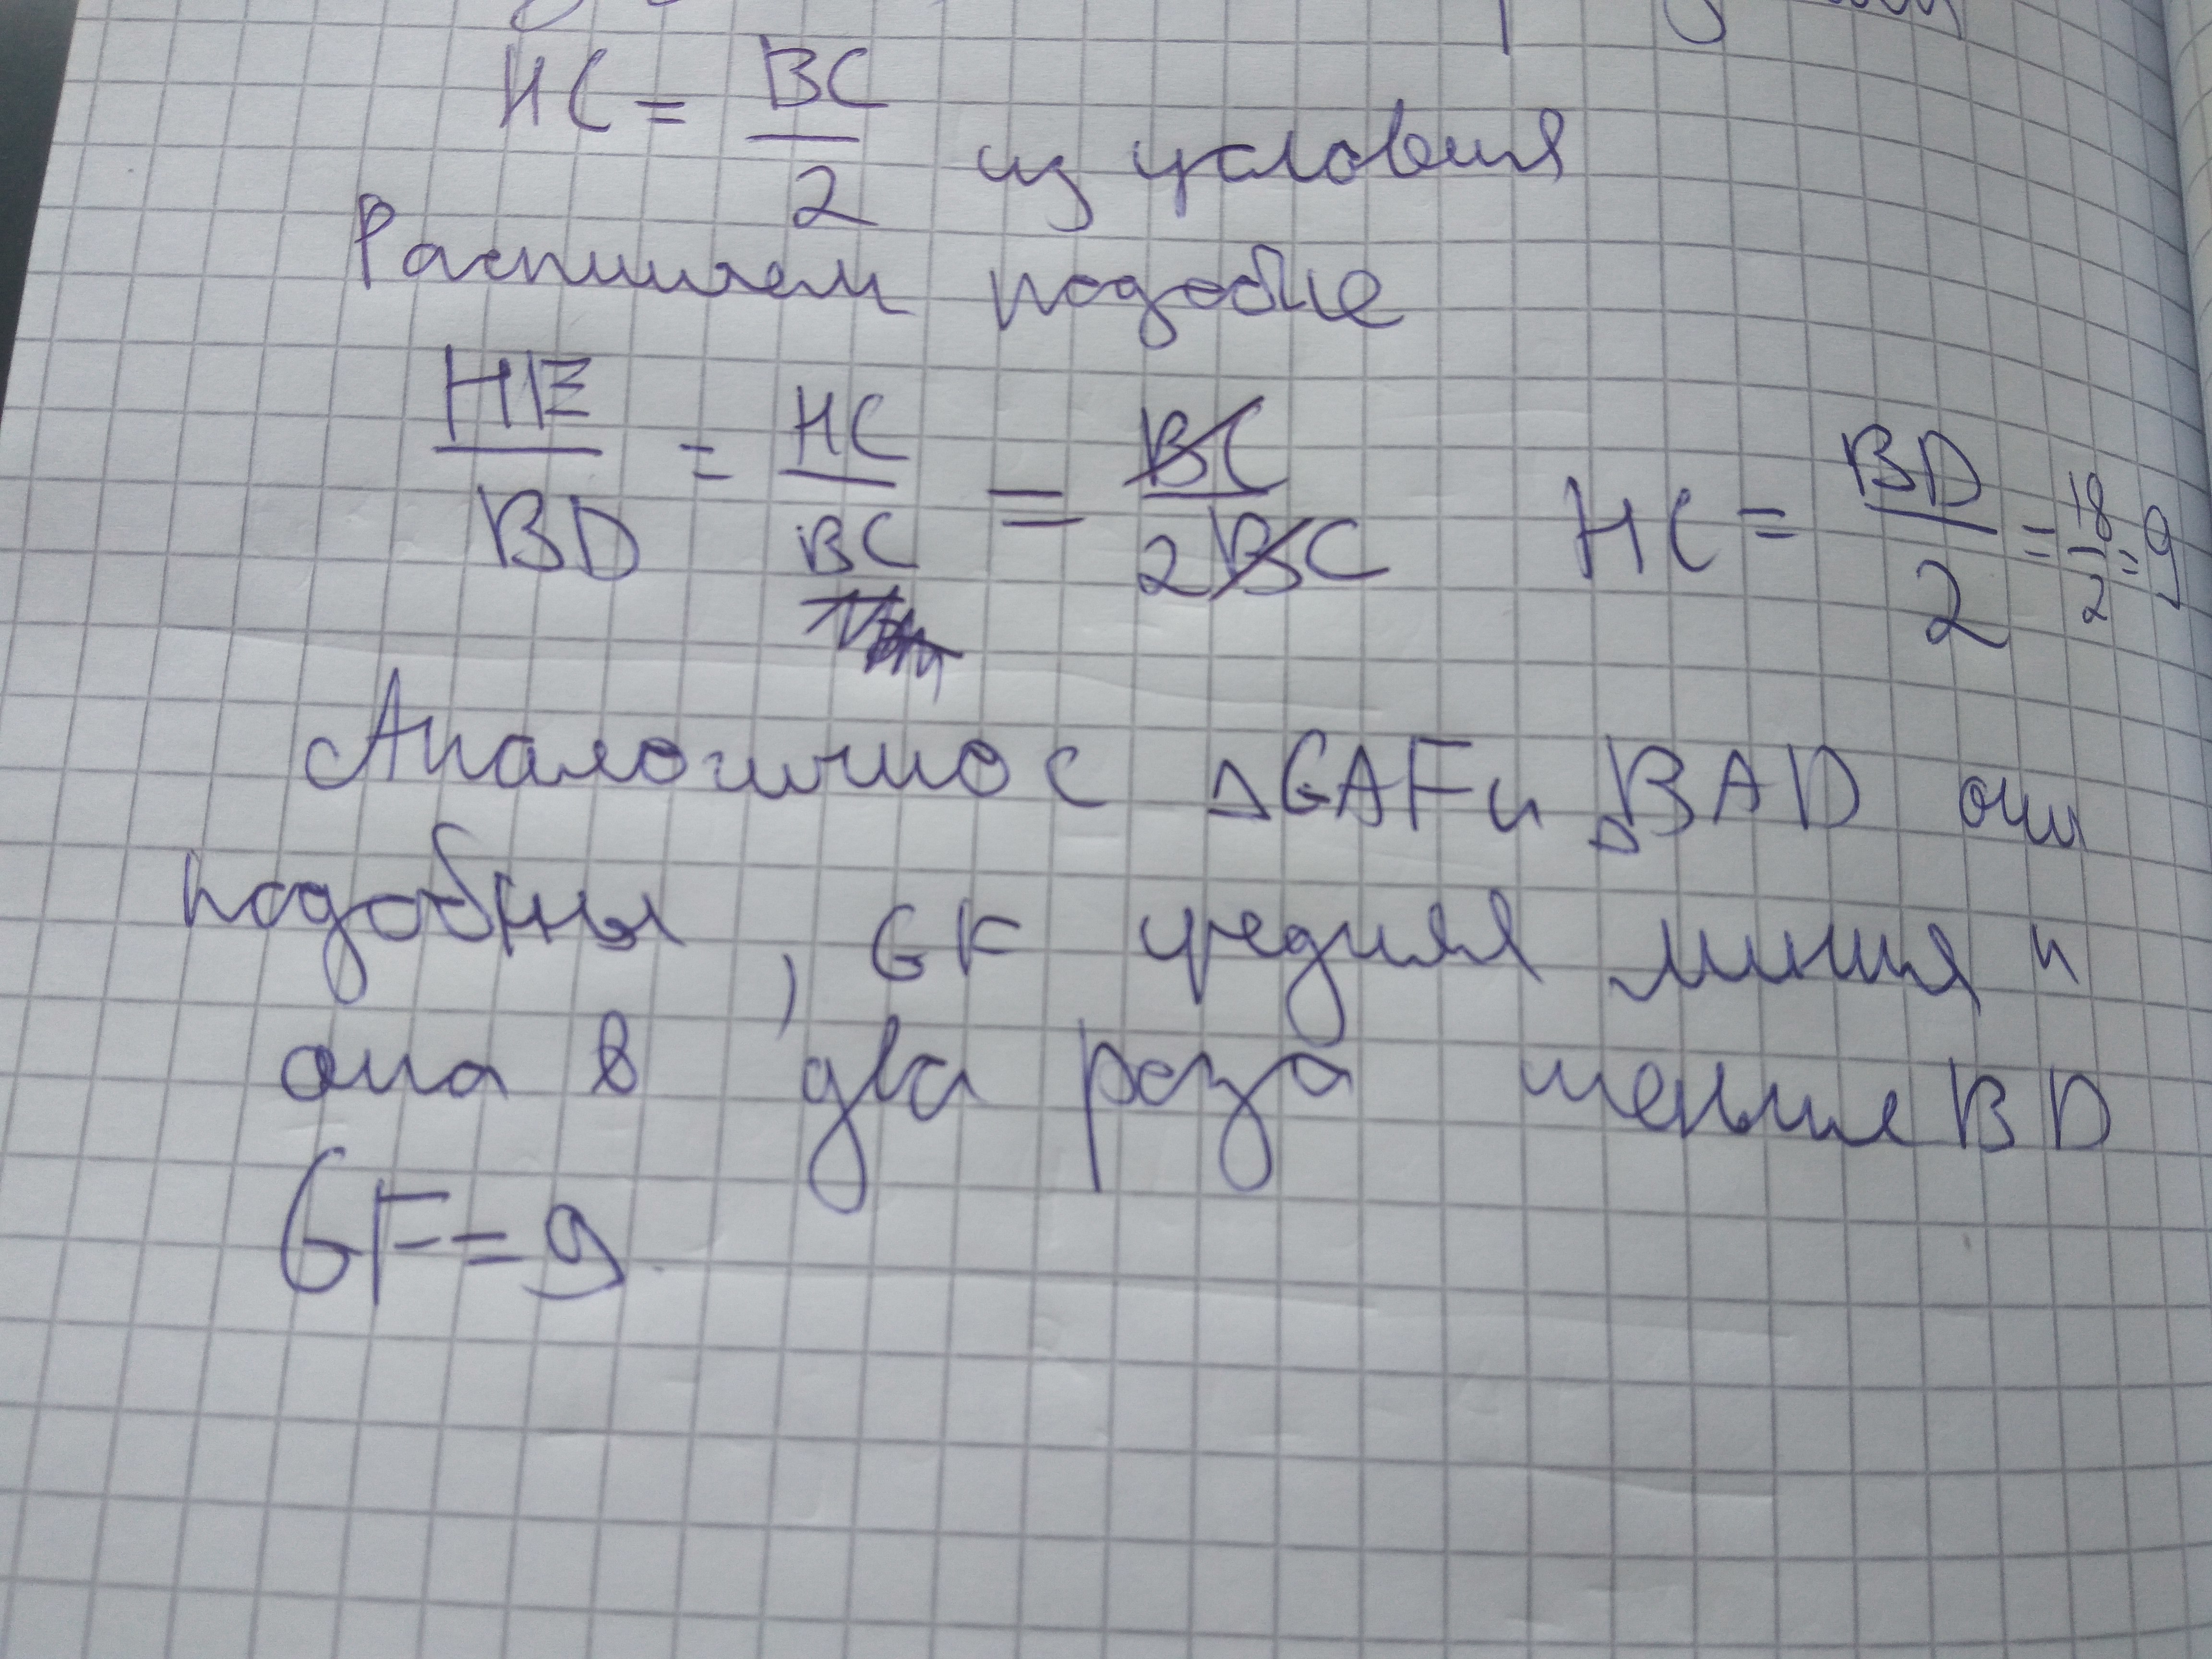 HC = BC/2 из условия
Распишем подобие
HE/BD = HC/BC = BC/2BC HC = BD/2 = 18/2 = 9
Аналогично с ΔGAF и ΔBAD они
подобны, GF средняя линия и
она в два раза меньше BD
GF = 9